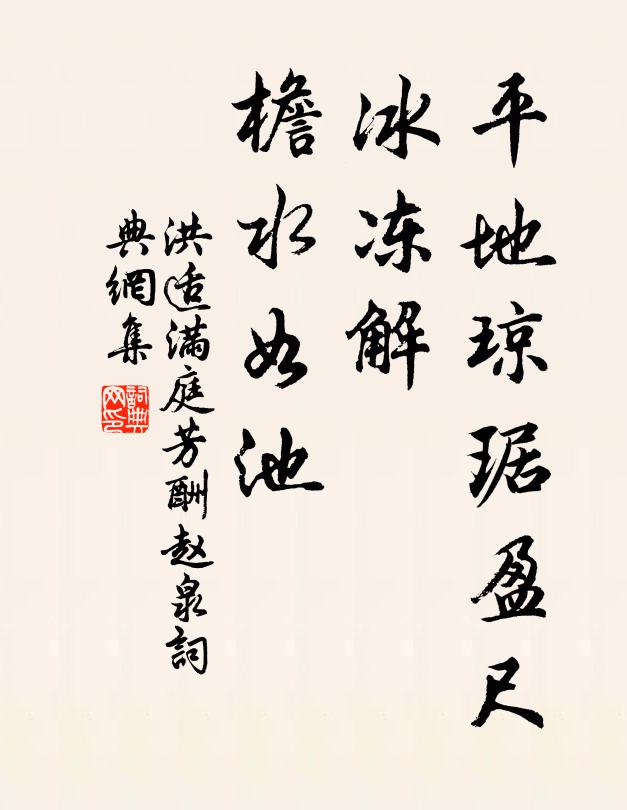 平地琼琚盈尺
冰冻解
檐水如池
洪适满庭芳酬赵泉詞
典網集
詞典网印